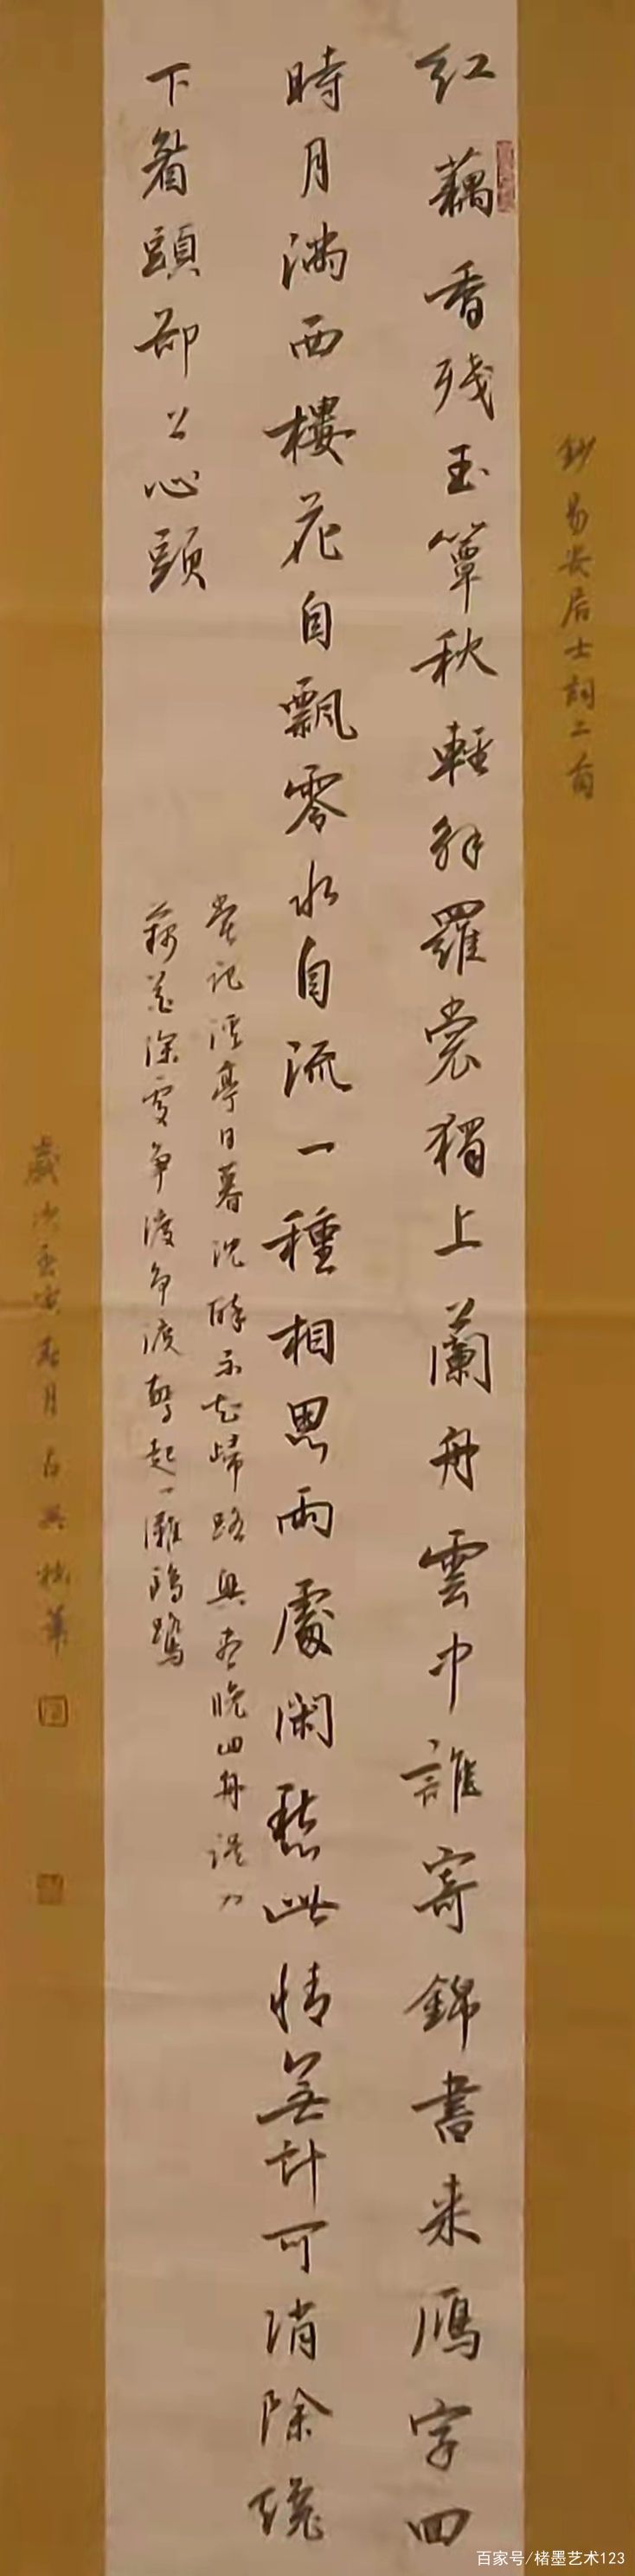 鈔易安居士詞二首
红藕香残玉簟秋輕解羅裳獨上蘭舟雲中誰寄錦書来鴈字回
時月满西樓花自飄零水自流一種相思兩處閑愁此情無計可消除纔
下眉頭却上心頭
常记溪亭日暮沉醉不知歸路興盡晚回舟误入
藕花深處争渡争渡驚起一灘鷗鷺
歲次壬寅春月古吴
百家号/楮墨艺术123